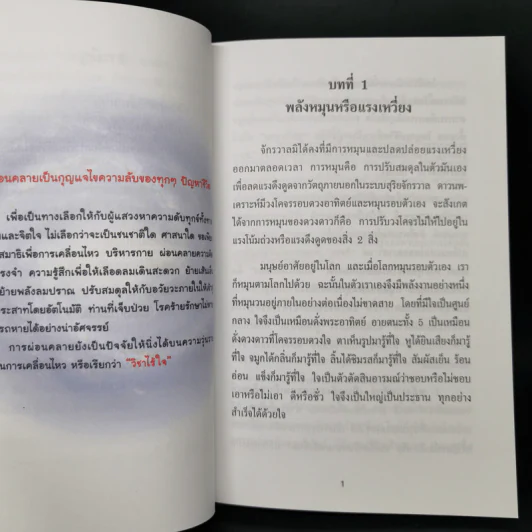 ผ่อนคลายเป็นกุญแจไขความลับของทุกๆ ปัญหาชีวิต
เพื่อเป็นทางเลือกให้กับผู้แสวงหาความดับทุกข์ทั้งกาย
และจิตใจ ไม่เลือกว่าจะเป็นชนชาติใด ศาสนาใด
สมาธิเพื่อการเคลื่อนไหว บริหารกาย ผ่อนคลายความ
ทรงจำ ความรู้สึกเพื่อให้เลือดลมเดินสะดวก ย้ายเส้น
ย้ายพลังลมปราณ ปรับสมดุลให้กับอวัยวะภายในให้
ประสาทโดยอัตโนมัติ ท่านที่เจ็บป่วย โรคร้ายรักษาไม่
รถหายได้อย่างน่าอัศจรรย์
การผ่อนคลายยังเป็นปัจจัยให้นิ่งได้บนความวุ่น
นการเคลื่อนไหว หรือเรียกว่า "วิชาไร้ใจ"
บทที่ 1
พลังหมุนหรือแรงเหวี่ยง
จักรวาลมิได้คงที่มีการหมุนและปลดปล่อยแรงเหวี่ยง
ออกมาตลอดเวลา การหมุนคือ การปรับสมดุลในตัวมันเอง
เพื่อลดแรงดึงดูดจากวัตถุภายนอกในระบบสุริยจักรวาล ดาวนพ-
เคราะห์มีวงโคจรรอบดวงอาทิตย์และหมุนรอบตัวเอง จะสังเกต
ได้จากการหมุนของดวงดาวก็คือ การปรับวงโคจรไม่ให้ไปอยู่ใน
แรงโน้มถ่วงหรือแรงดึงดูดของสิ่ง 2 สิ่ง
มนุษย์อาศัยอยู่ในโลก และเมื่อโลกหมุนรอบตัวเอง เรา
ก็หมุนตามโลกไปด้วย ฉะนั้นในตัวเราเองจึงมีพลังงานอย่างหนึ่ง
ที่หมุนวนอยู่ภายในอย่างต่อเนื่องไม่ขาดสาย โดยที่มีใจเป็นศูนย์
กลาง ใจจึงเป็นเหมือนดั่งพระอาทิตย์ อายตนะทั้ง 5 เป็นเหมือน
ดั่งดวงดาวที่โคจรรอบดวงใจ ตาเห็นรูปมารู้ที่ใจ หูได้ยินเสียงก็มารู้
ที่ใจ จมูกได้กลิ่นก็มารู้ที่ใจ ลิ้นได้ชิมรสก็มารู้ที่ใจ สัมผัสเย็น ร้อน
อ่อน แข็งก็มารู้ที่ใจ ใจเป็นตัวตัดสินอารมณ์ว่าชอบหรือไม่ชอบ
เอาหรือไม่เอา ดีหรือชั่ว ใจจึงเป็นใหญ่เป็นประธาน ทุกอย่าง
สำเร็จได้ด้วยใจ
1